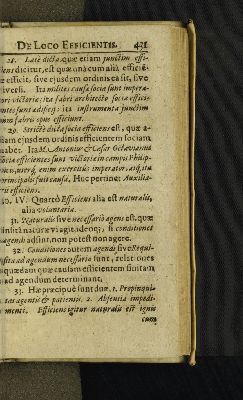 DE LOCO EFFICIENTIS. 431
28. Latè dicta, quæ etiam junctim effi-
ciens dicitur, est quæ unà cum aliâ efficien-
te efficit, sive ejusdem ordinis ea sit, sive
diversi. Ita milites causa socia sunt impera-
tori victoriæ; ita fabri architecto socia effici-
entes sunt ædificij: ita instrumenta junctim
cum fabris opus efficiunt.
29. Strictè dicta socia efficiens est, quæ a-
liam ejusdem ordinis efficientem sociam
habet. Ita M. Antonius & Cæsar Octavianus
socia efficientes sunt victoriæ in campis Philip-
picis, uterq, enim exercitus imperator, atq, ita
principalis fuit causa. Huc pertinet Auxilia-
rii efficiens.
30. IV. Quartò Efficiens alia est naturalis,
alia voluntaria.
31. Naturalis sive necessariò agens est, quæ
insitâ naturæ vi agit, ideoq; si conditiones
agendi adsint, non potest non agere.
32. Conditiones autem agendi sive Requi-
sita ad agendum necessaria sunt, relationes
quædam quæ causam efficientem
ad agendum determinant.
33. Hæ præcipuè sunt duæ. 1. Propinqui-
tas agentis & patientis. 2. Absentia impedi-
menti. Efficiens igitur naturalis est ignis
cum